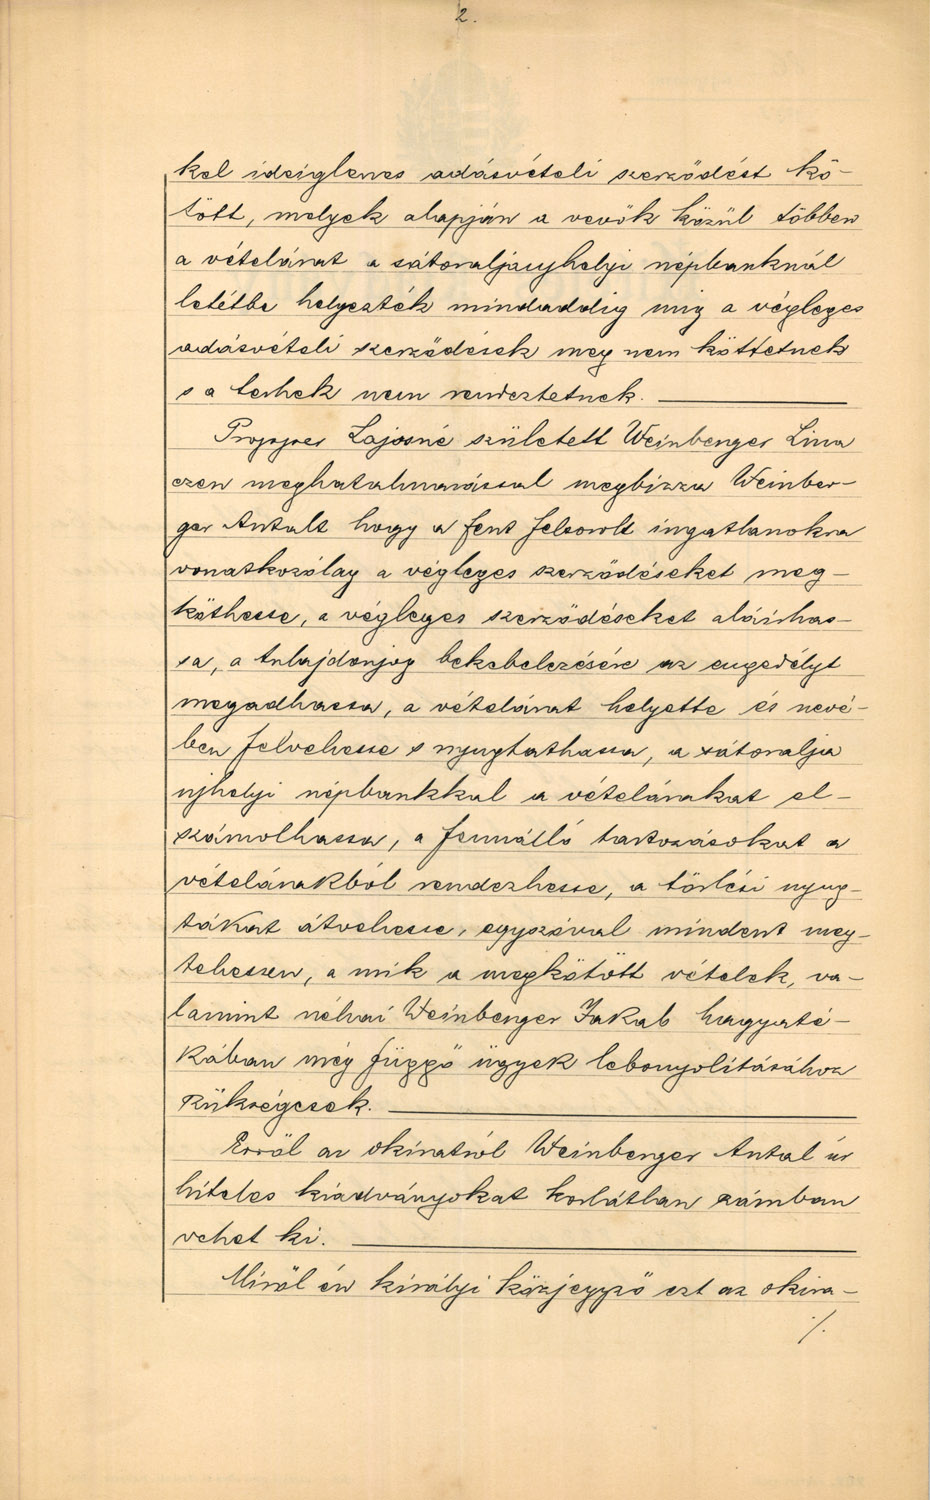 2.
kel ideiglenes adásvételi szerződést kö-
tött, melyek alapján a vevők közül többen
a vételárat a sátoraljaujhelyi népbanknál
letétbe helyezték mindaddig mig a végleges
adásvételi szerződések meg nem köttetnek
s a terhek nem rendeztetnek.
Lajosné született Weinberger Lina
ezen meghatalmazással megbizza Weinber-
ger Antalt hogy a fent felsorolt ingatlanokra
vonatkozólag a végleges szerződéseket meg-
köthesse, a végleges szerződéseket aláirhas-
sa, a tulajdonjog bekebelezésére az engedélyt
megadhassa, a vételárat helyette és nevé-
ben felvehesse s nyugtathassa, a sátoralja
ujhelyi népbankkal a vételárakat el-
számolhassa, a fennálló tartozásokat a
vételárakból rendezhesse, a törlési nyug-
tákat átvehesse, egyszóval mindent meg-
tehessen, a mik a megkötött vételek, va-
lamint néhai Weinberger Jakab hagyaté-
kában még függő ügyek lebonyolításához
szükségesek.
Erről az okiratról Weinberger Antal úr
hiteles kiadványokat korlátlan számban
vehet ki.
Miről én királyi közjegyző ezt az okira-
./.